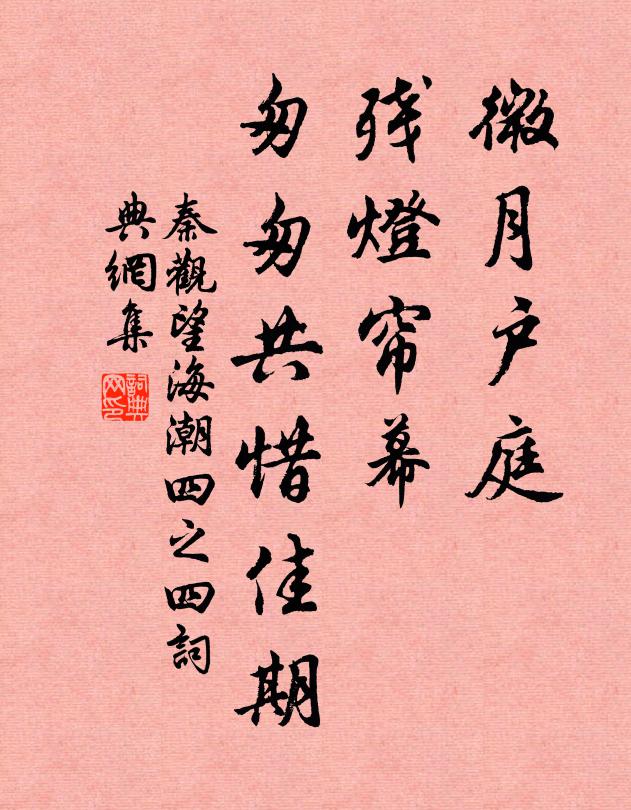 微月户庭
残燈帘幕
匆匆共惜佳期
秦觀望海潮四之四詞
典網集
詞典网印